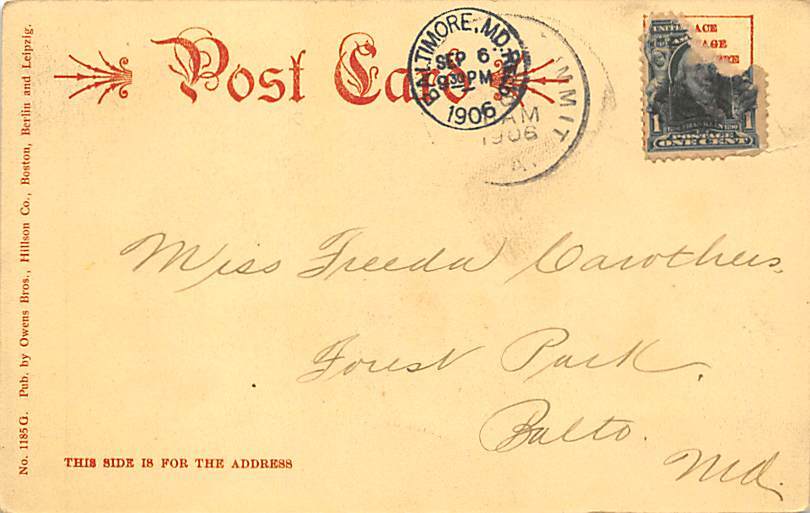 Post Card
BALTIMORE, MD.
SEP 6
9 30 PM
1906
MMIT
AM
1906
A.
UNITED
ACE
AGE
RE
1 1
POSTAGE
ONE CENT
Miss Freeda Carothers,
Forest Park,
Balto.
Md.
THIS SIDE IS FOR THE ADDRESS
No. 1185 G. Pub. by Owens Bros., Hillson Co., Boston, Berlin and Leipzig.